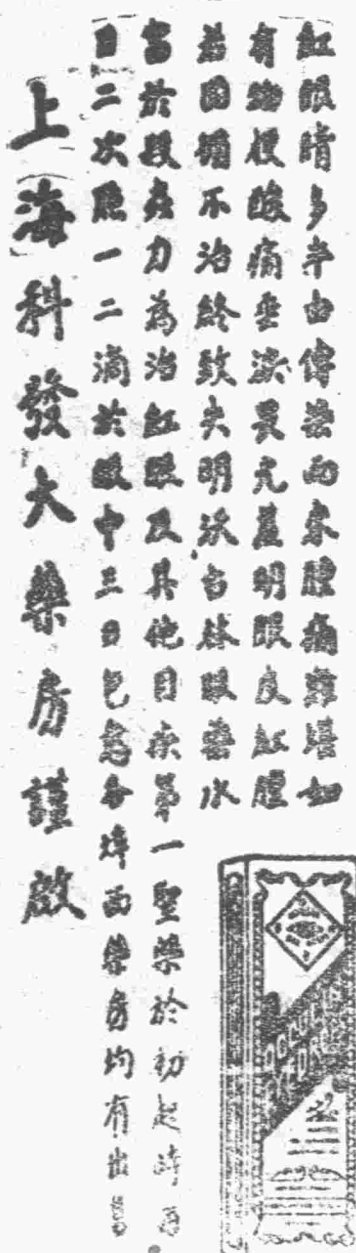 紅眼睛多半由傳染而來腫痛難堪如
有物梗酸痛垂淚畏光羞明眼皮紅腫
若因循不治終致失明沃古林眼藥水
富於殺菌力為治紅眼及其他目疾第一聖藥於初起時每
日二次點一二滴於眼中三日包愈各埠西藥房均有出售
上海科發大藥房謹啟